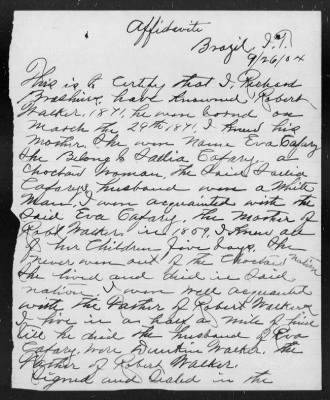 Affidavit
Brazil, I.T.
9/26/04
This is to Certify that I, Richard
Brashiers, have knowned Robert
Walker, 1871, he wan borned on
March the 29th 1871, I knew his
Mother, She wan Name Eva Cafary
She Belong to Sallia Cafary, a
Choctaw woman, the Said Sallia
Cafary husband wan a White
Man, I wan acquainted with the
Said Eva Cafary, the Mother of
Robt Walker in 1859, I Knew all
of her Children Five boys, She
never wan out of the Choctaw Nation
She lived and died in Said
nation, I wan well acquainted
with the Father of Robert Walker
I live in a half a mile of him
till he died the husband of Eva
Cafary, were Dunkin Walker, the
Father of Robert Walker.
Signed and Sealed in the